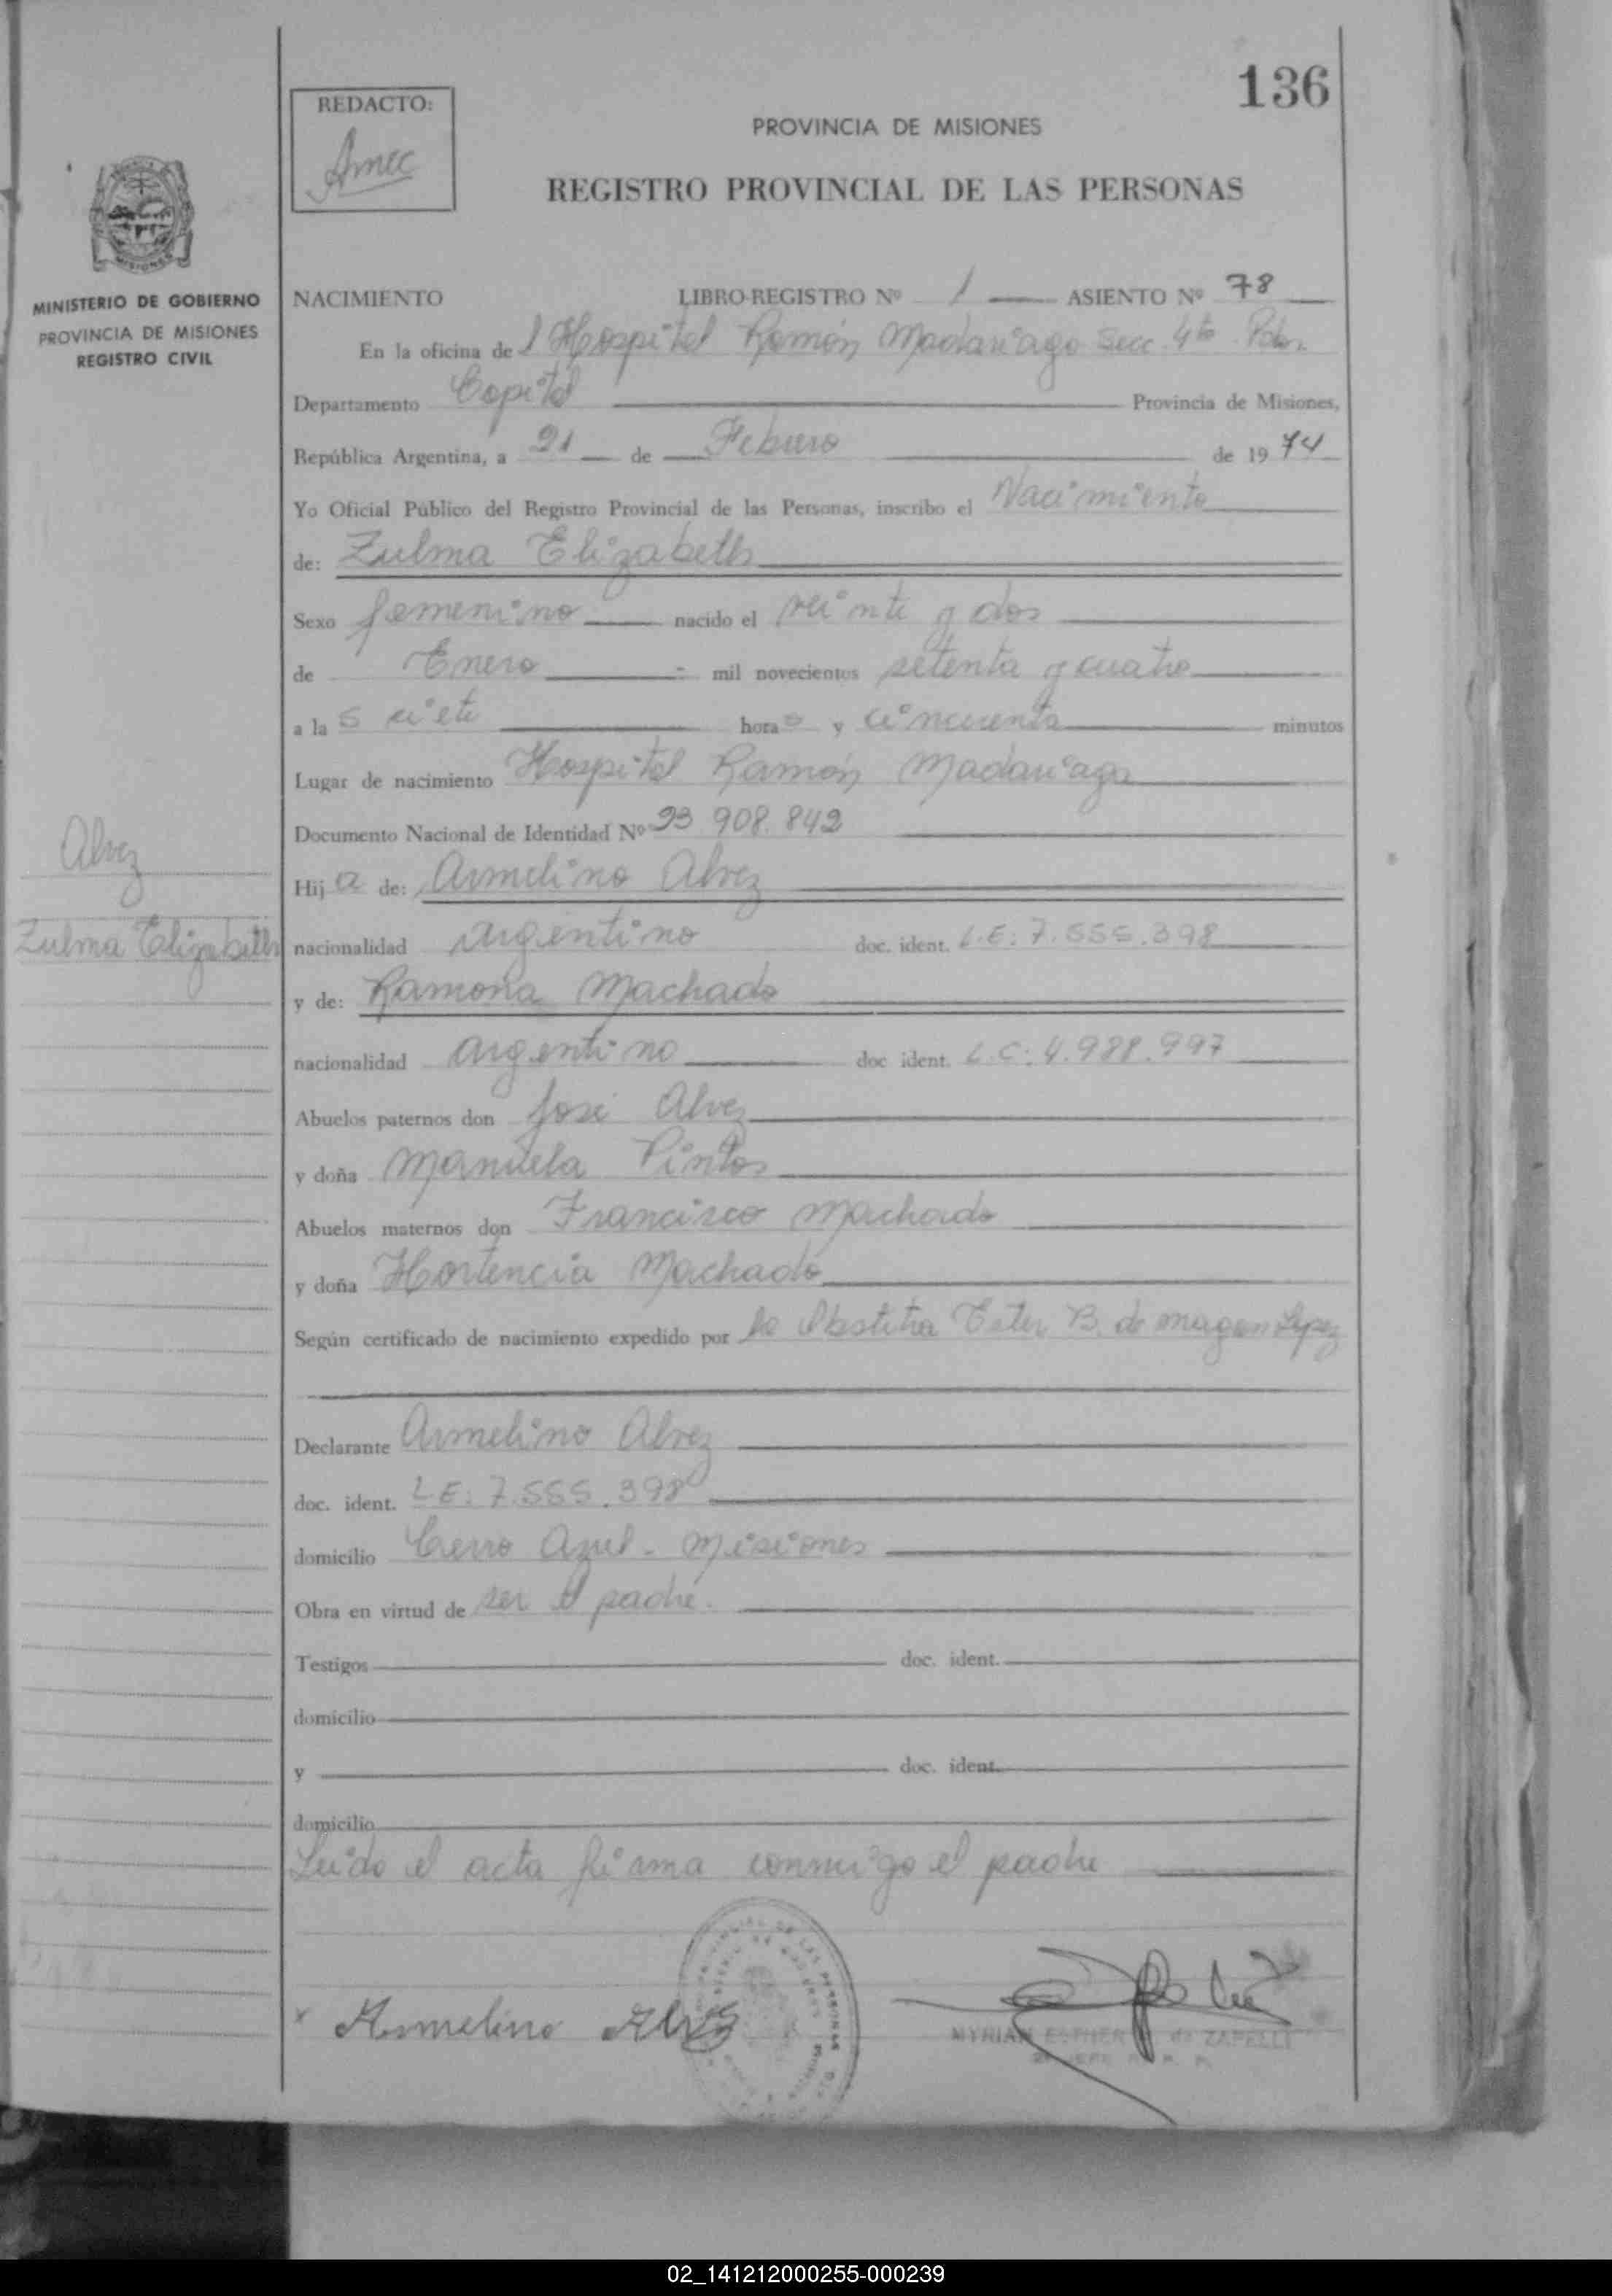 136
REDACTO:
PROVINCIA DE MISIONES
REGISTRO PROVINCIAL DE LAS PERSONAS
MISIONES
MINISTERIO DE GOBIERNO
PROVINCIA DE MISIONES
REGISTRO CIVIL
NACIMIENTO LIBRO-REGISTRO Nº 1 ASIENTO Nº 78
En la oficina del Hospital Ramón Madariaga Secc. 4ta
Departamento Capital Provincia de Misiones,
República Argentina, a 21 de Febrero de 1974
Yo Oficial Público del Registro Provincial de las Personas, inscribo el Nacimiento
de: Zulma Elizabeth
Sexo femenino nacido el veinte y dos
de Enero mil novecientos setenta y cuatro
a las siete horas y cincuenta minutos
Lugar de nacimiento Hospital Ramón Madariaga
Documento Nacional de Identidad Nº 23.908.842
Alvez
Hija de: Armelino Alvez
Zulma Elizabeth
nacionalidad argentino doc. ident. L.E: 7.555.398
y de: Ramona Machado
nacionalidad argentino doc ident. L.C: 4.988.997
Abuelos paternos don José Alvez
y doña Manuela Pintos
Abuelos maternos don Francisco Machado
y doña Hortencia Machado
Según certificado de nacimiento expedido por la Obstetra Ester B. de López
Declarante Armelino Alvez
doc. ident. L.E: 7.555.398
domicilio Cerro Azul - Misiones
Obra en virtud de ser el padre.
Testigos doc. ident.
domicilio
y doc. ident.
domicilio
Leido el acta firma conmigo el padre
x Armelino Alvez
MYRIAN ESTHER de ZAPELLI
02_141212000255-000239